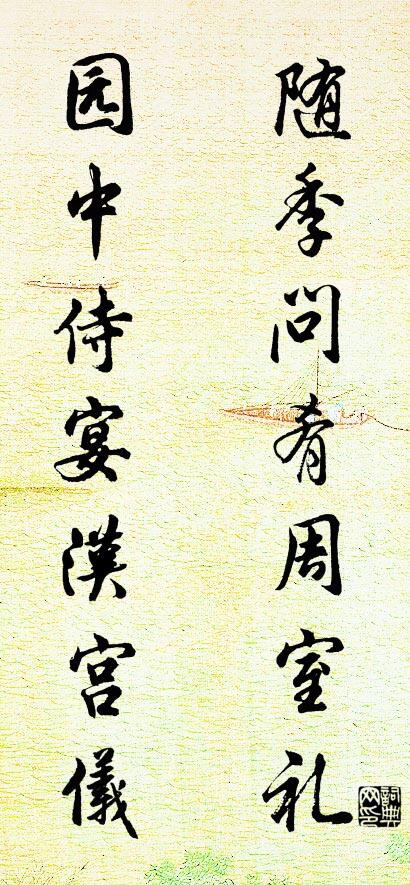 随季问肴周室礼
园中侍宴漢宫儀
詞典网印